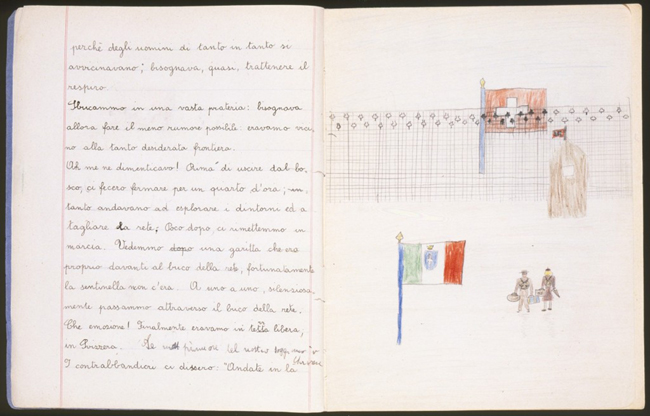 perchè degli uomini di tanto in tanto si
avvicinavano; bisognava, quasi, trattenere il
respiro.
Sbucammo in una vasta prateria: bisognava
allora fare il meno rumore possibile: eravamo vici,
no alla tanto desiderata frontiera.
Ah me ne dimenticavo! Prima di uscire dal bo,
sco, ci fecero fermare per un quarto d'ora; in,
tanto andavano ad esplorare i dintorni ed a
tagliare la rete; Poco dopo, ci rimettemmo in
marcia. Vedemmo dopo una garitta che era
proprio davanti al buco della rete, fortunatamente
la sentinella non c'era. A uno a uno, silenziosa
mente passammo attraverso il buco della rete.
Che emozione! Finalmente eravamo in terra libera,
in Svizzera.
I contrabbandieri ci dissero: "Andate in la